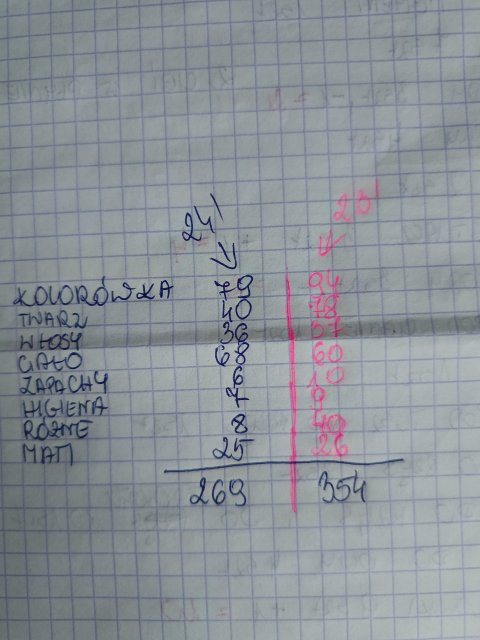 24' 23'
KOLORÓWKA 79 94
TWARZ 40 78
WŁOSY 36 37
CIAŁO 68 60
ZAPACHY 6 10
HIGIENA 7 9
RÓŻNE 8 40
25 26
269 354